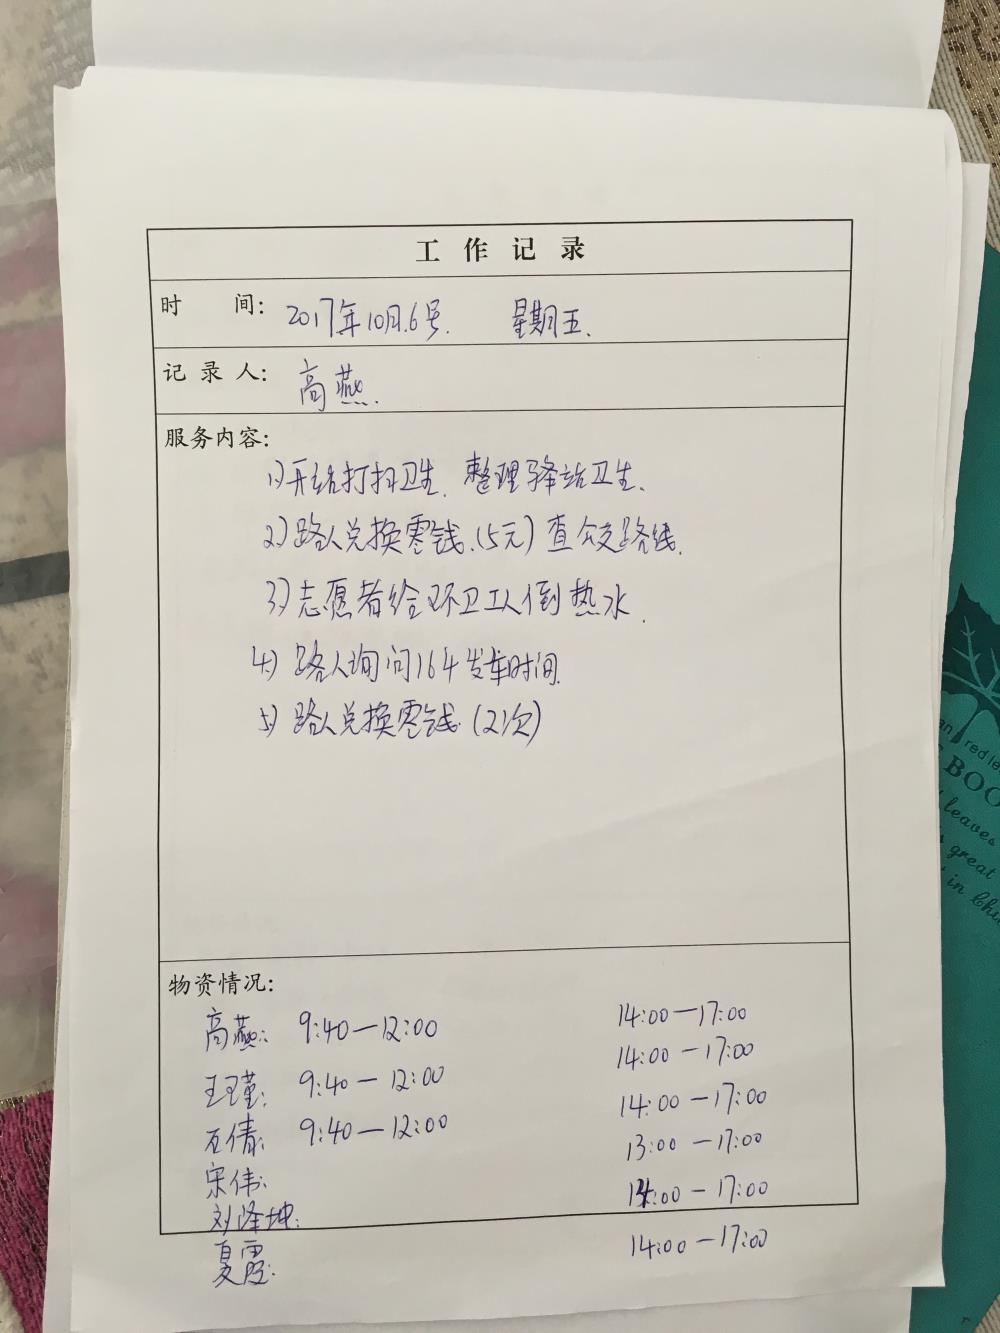 工作记录
时 间: 2017年10月.6号. 星期五.
记录人: 高燕.
服务内容:
1)开始打扫卫生、整理驿站卫生、
2)路人兑换零钱.(5元)查公交路线.
3)志愿者给环卫工人倒热水.
4)路人询问164发车时间.
5)路人兑换零钱.(2次)
物资情况:
高燕: 9:40—12:00 14:00—17:00
王瑾: 9:40—12:00 14:00—17:00
石倩: 9:40—12:00 14:00—17:00
宋伟: 13:00—17:00
刘泽坤: 14:00—17:00
夏霞: 14:00—17:00
red
BOO
leaves
great
in Chi